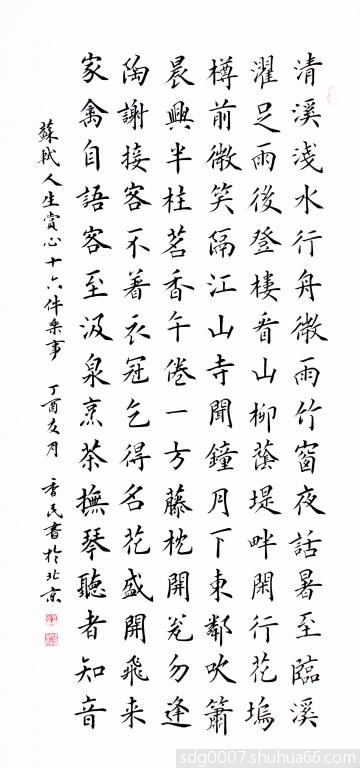 清溪淺水行舟微雨竹窗夜話暑至臨溪
濯足雨後登樓看山柳蔭堤畔閑行花塢
樽前微笑隔江山寺聞鐘月下東鄰吹簫
晨興半柱茗香午倦一方藤枕開瓮勿逢
陶謝接客不著衣冠乞得名花盛開飛来
家禽自語客至汲泉烹茶撫琴聽者知音
蘇軾人生賞心十六件樂事 丁酉夏月 民書於北京
sdg0007.shuhua66.com